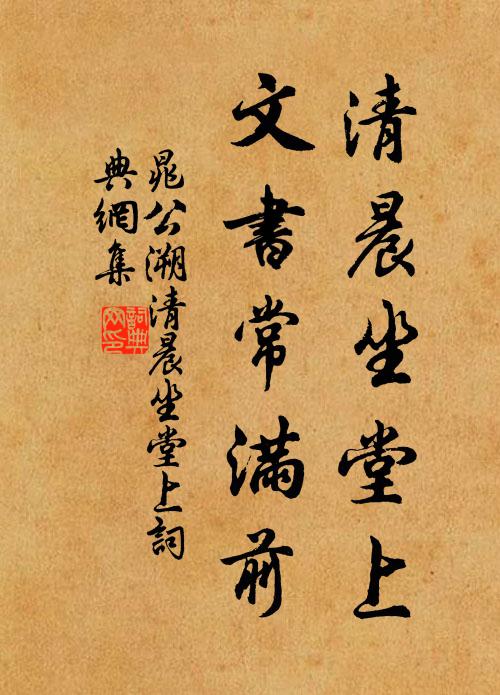 清晨坐堂上
文書常滿前
晁公溯清晨坐堂上詞
典網集
詞典網印